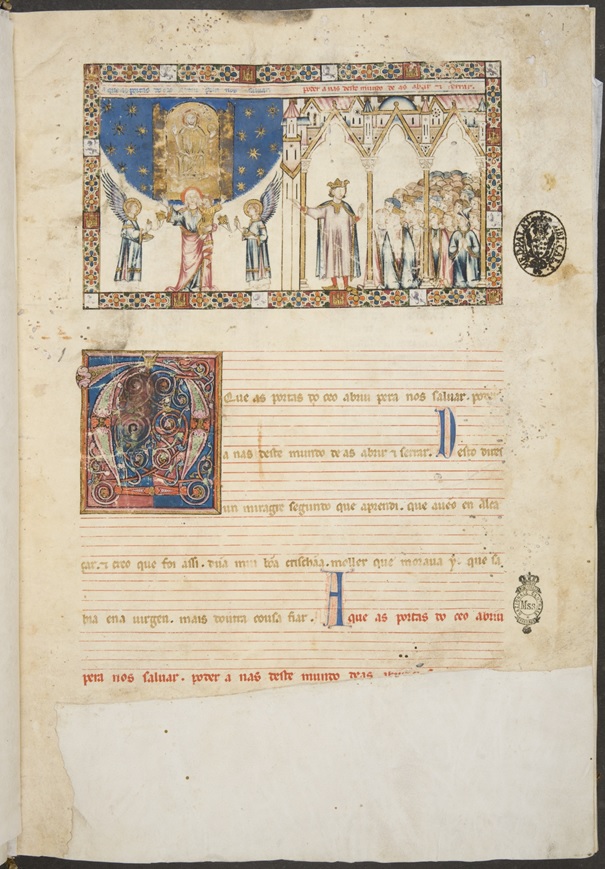 que as portas do ceo abriu pera nos saluar.
poder a nas deste mundo de as abrir ⁊ serrar.
Que as portas do ceo abriu pera nos saluar. poder
a nas deste mundo de as abrir ⁊ serrar. Desto direi
un miragre segundo que aprendi. que aueo en alca
çar. ⁊ creo que foi assi. dũa mui bõa crischãa. moller que moraua y. que sa
bia ena uirgen. mais doutra cousa fiar. A que as portas do ceo abriu
pera nos saluar. poder a nas deste mundo deas
Mss